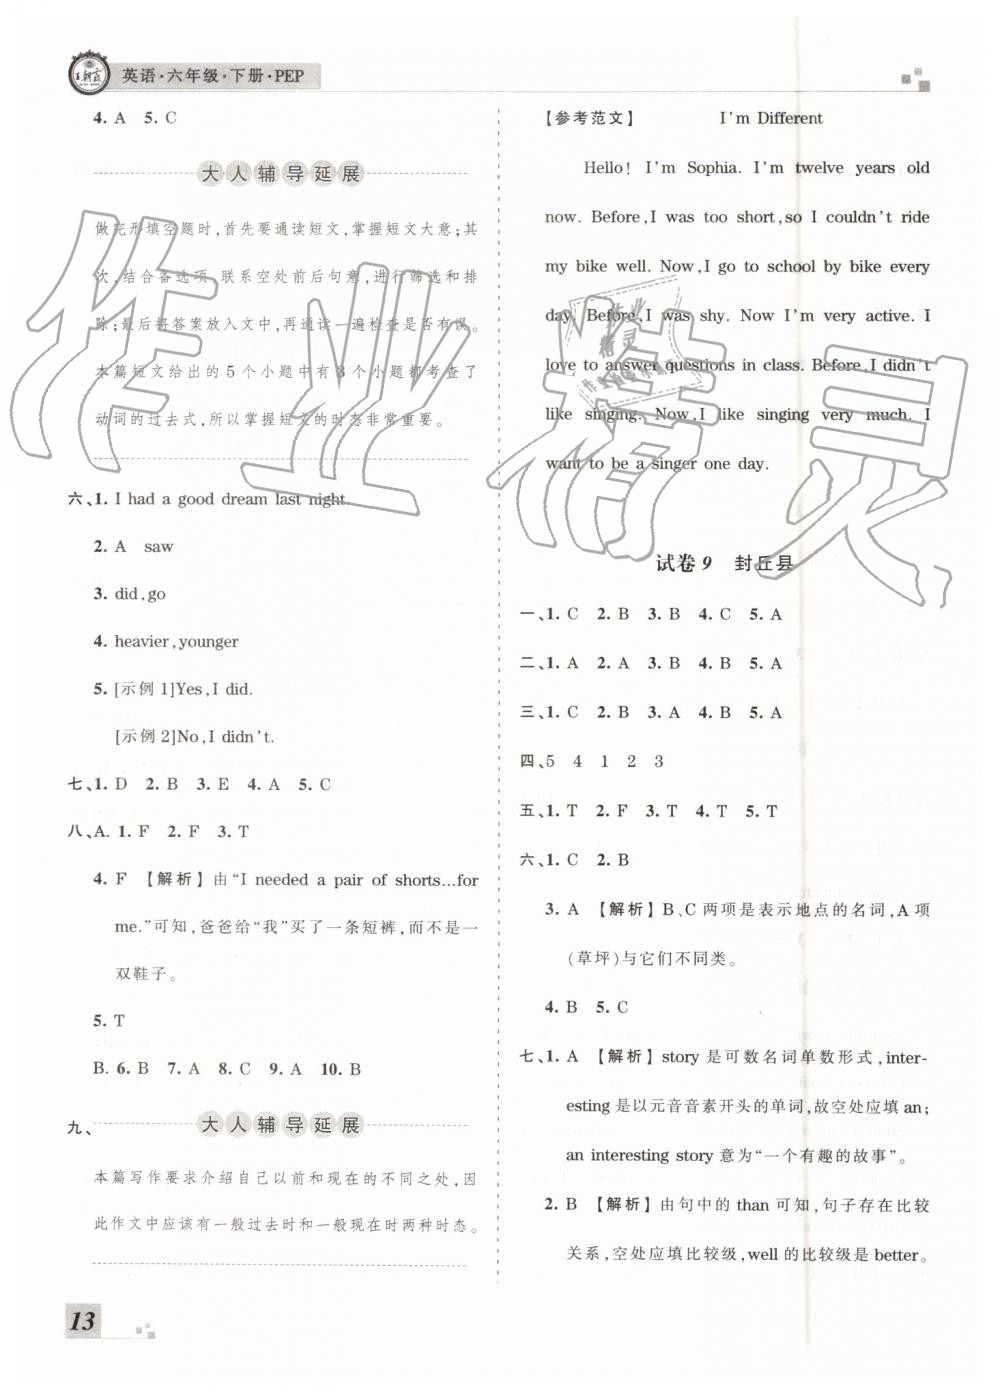 王朝霞
英语·六年级·下册·PEP
4. A 5. C
大人辅导延展
做完形填空题时,首先要通读短文,掌握短文大意;其
次,结合备选项,联系空处前后句意,进行筛选和排
除;最后将答案放入文中,再通读一遍检查是否有误。
本篇短文给出的5个小题中有3个小题都考查了
动词的过去式,所以掌握短文的时态非常重要。
六、1. I had a good dream last night.
2. A saw
3. did,go
4. heavier,younger
5. [示例1]Yes,I did.
[示例2]No,I didn't.
七、1. D 2. B 3. E 4. A 5. C
八、A. 1. F 2. F 3. T
4. F 【解析】由“I needed a pair of shorts…for
me.”可知,爸爸给“我”买了一条短裤,而不是一
双鞋子。
5. T
B. 6. B 7. A 8. C 9. A 10. B
九、
大人辅导延展
本篇写作要求介绍自己以前和现在的不同之处,因
此作文中应该有一般过去时和一般现在时两种时态。
13
【参考范文】 I'm Different
Hello! I'm Sophia. I'm twelve years old
now. Before,I was too short,so I couldn't ride
my bike well. Now,I go to school by bike every
day. Before,I was shy. Now I'm very active. I
love to answer questions in class. Before,I didn't
like singing. Now,I like singing very much. I
want to be a singer one day.
试卷9 封丘县
一、1. C 2. B 3. B 4. C 5. A
二、1. A 2. A 3. B 4. B 5. A
三、1. C 2. B 3. A 4. B 5. A
四、5 4 1 2 3
五、1. T 2. F 3. T 4. T 5. T
六、1. C 2. B
3. A 【解析】B、C两项是表示地点的名词,A项
(草坪)与它们不同类。
4. B 5. C
七、1. A 【解析】story是可数名词单数形式,inter-
esting是以元音音素开头的单词,故空处应填an;
an interesting story意为“一个有趣的故事”。
2. B 【解析】由句中的than可知,句子存在比较
关系,空处应填比较级,well的比较级是better。
作业精灵